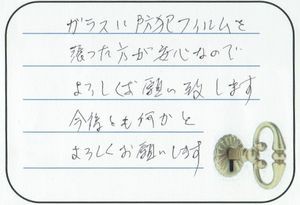 ガラスに防犯フィルムを
張った方が安心なので
よろしくお願い致します
今後とも何かと
よろしくお願いします